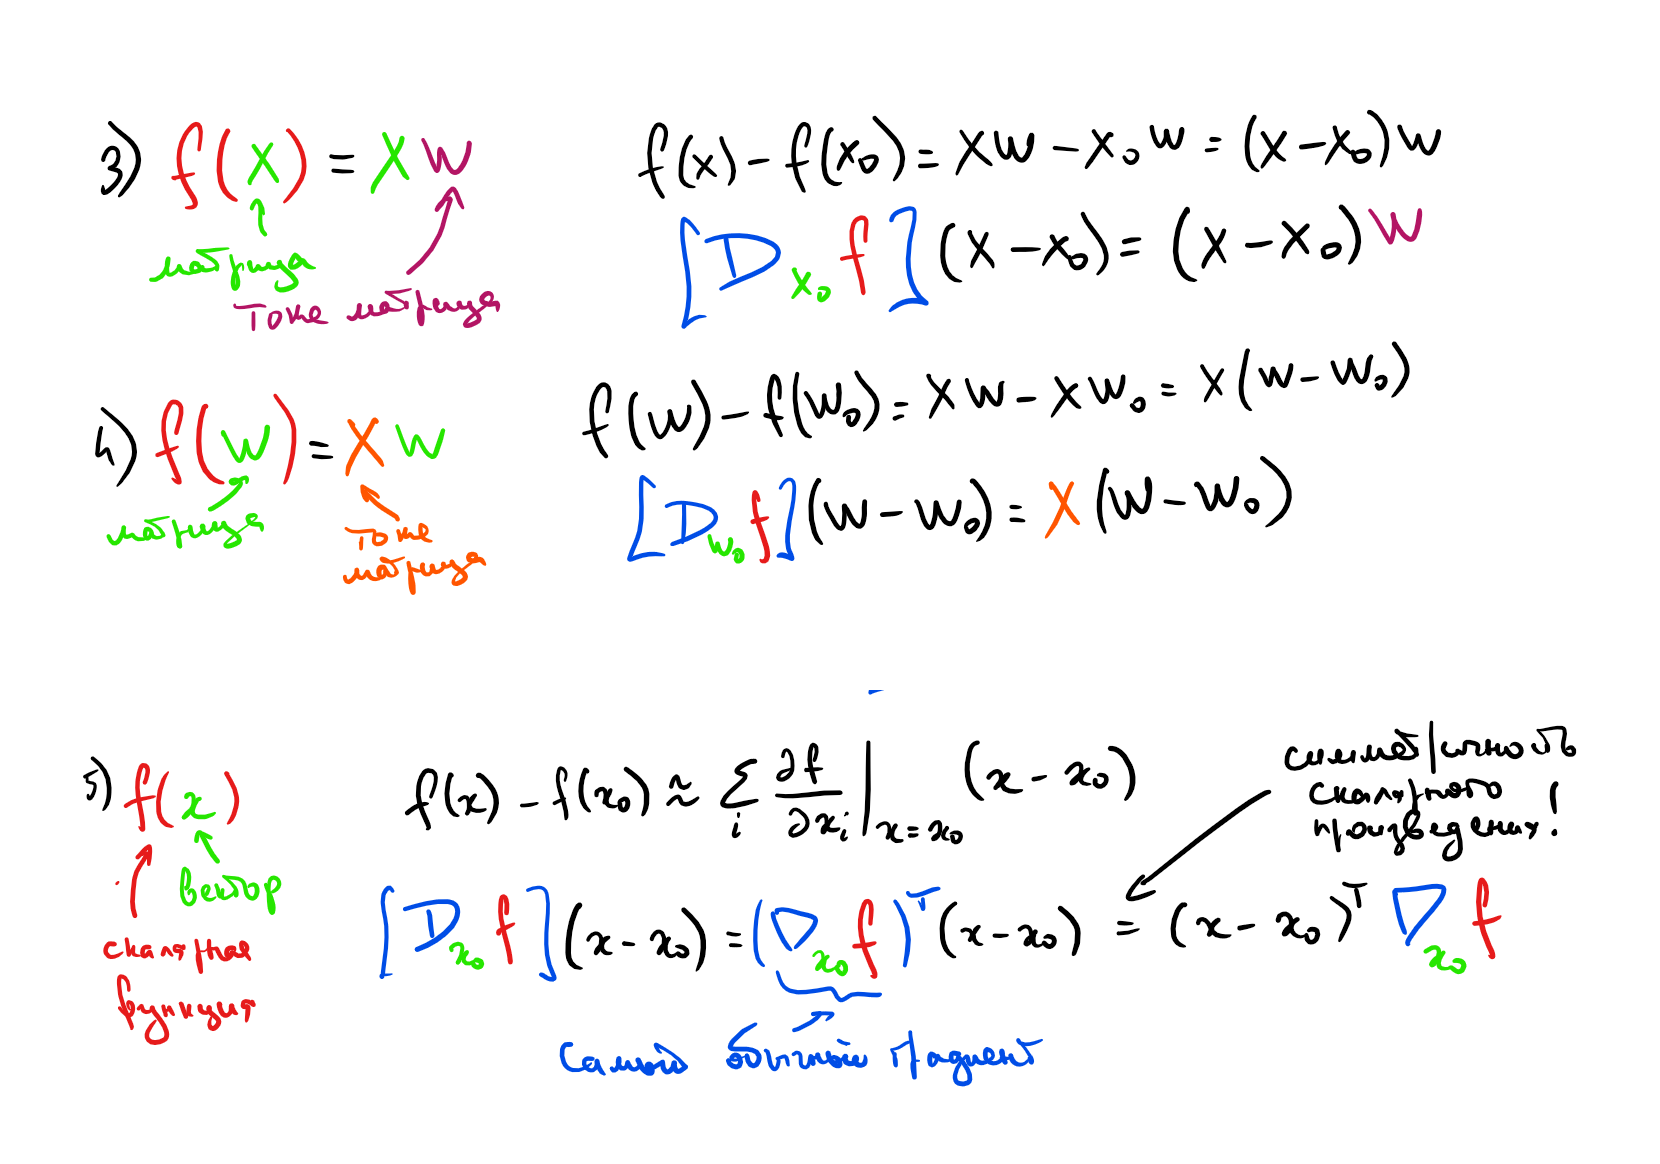 3) f(X) = XW
матрица
тоже матрица
f(x) - f(x₀) = XW - X₀W = (X - X₀)W
[D_{X₀} f](X - X₀) = (X - X₀)W
4) f(W) = XW
матрица
тоже
матрица
f(W) - f(W₀) = XW - XW₀ = X(W - W₀)
[D_{W₀} f](W - W₀) = X(W - W₀)
5) f(x)
вектор
скалярная
функция
f(x) - f(x₀) ≈ ∑_i ∂f/∂x_i |_{x=x₀} (x - x₀)
симметричность
скалярного
произведения!
[D_{x₀} f](x - x₀) = (∇_{x₀} f)ᵀ(x - x₀) = (x - x₀)ᵀ ∇_{x₀} f
Самый обычный градиент